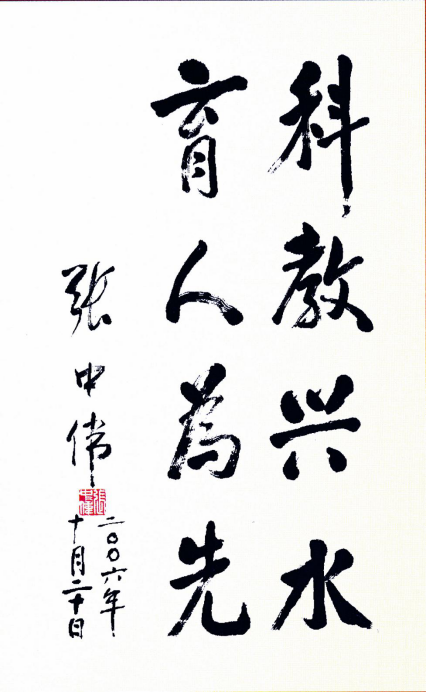 科教兴水
育人為先
张中伟
二〇〇六年
十月二十日
張中偉